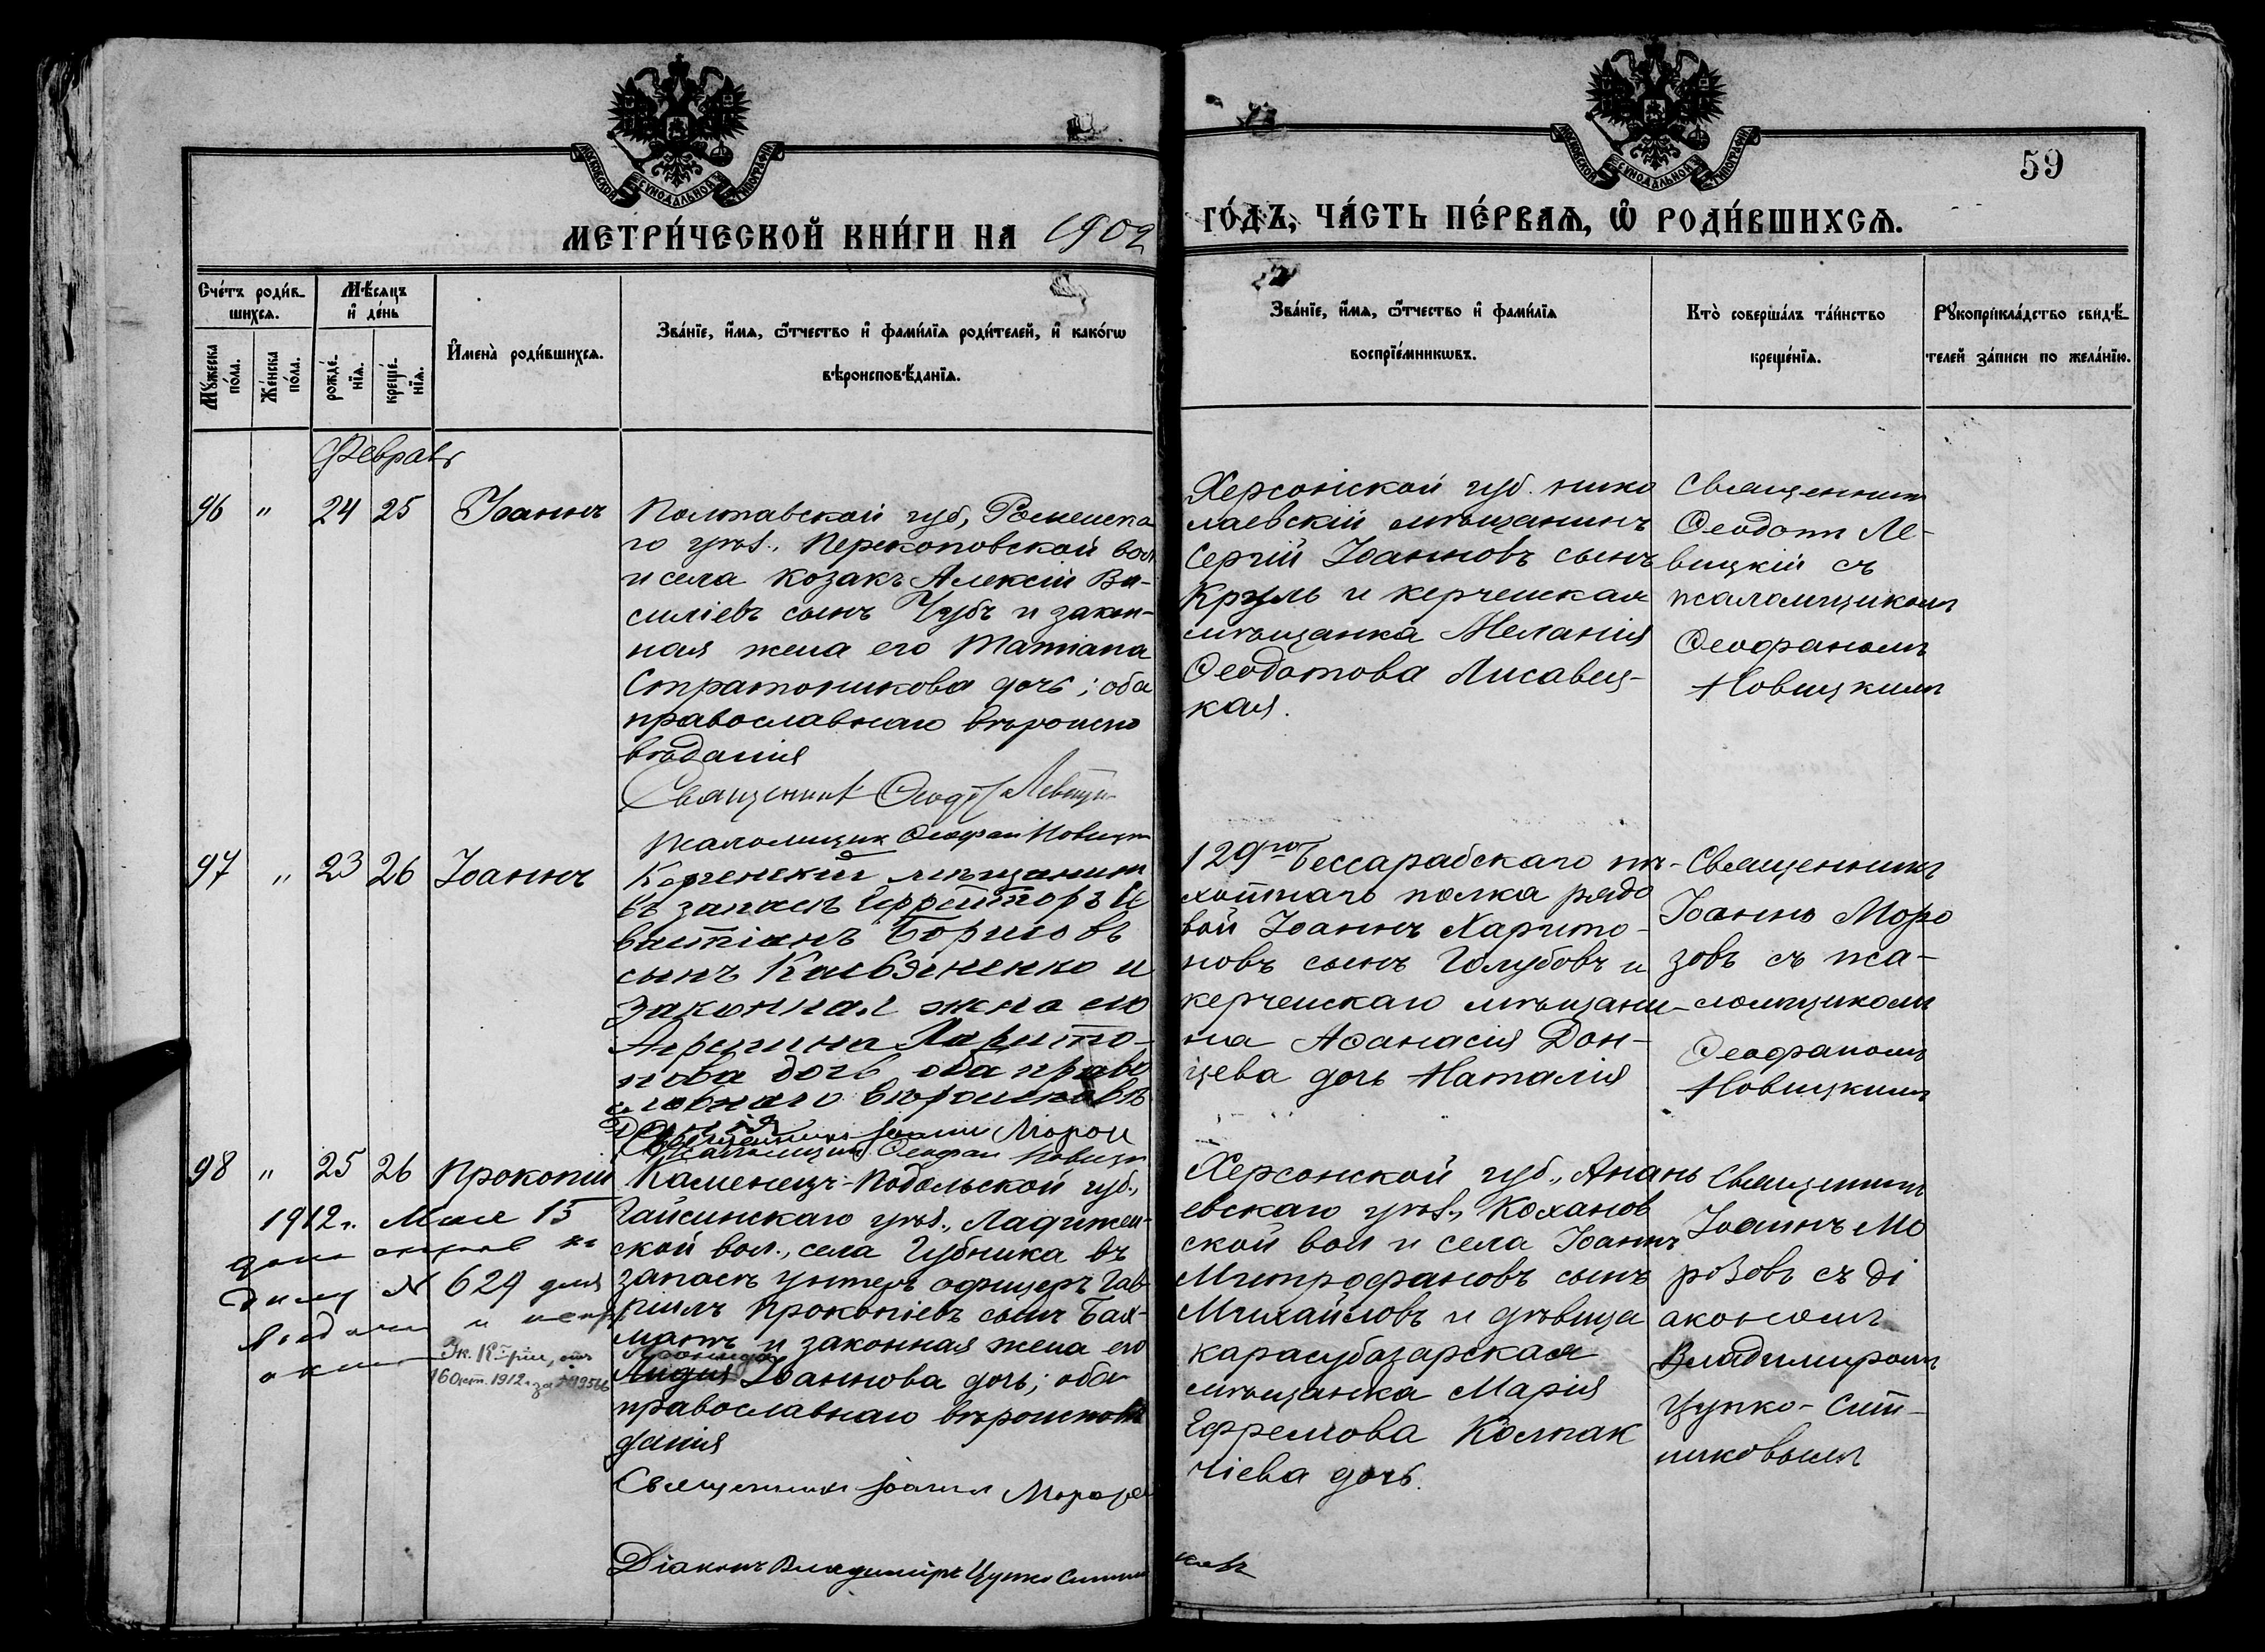 МОСКОВСКОЙ СѴНОДАЛЬНОЙ ТИПОГРАФІИ
МОСКОВСКОЙ СѴНОДАЛЬНОЙ ТИПОГРАФІИ
59
МЕТРИ́ЧЕСКОЙ КНИ́ГИ НА 1902
ГО́ДЪ, ЧА́СТЬ ПЕ́РВАѦ, Ѡ҆ РОДИ́ВШИХСѦ.
Сче́тъ роди́в-
шихсѧ.
Мꙋ́жеска
по́ла.
Же́нска
по́ла.
Мѣ́сѧцъ
и҆ де́нь
рожде́-
нїѧ.
креще́-
нїѧ.
И҆мена̀ роди́вшихсѧ.
Зва́нїе, и҆́мѧ, ѻ҆́тчество и҆ фами́лїѧ роди́телей, и҆ како́гѡ
вѣроисповѣ́данїѧ.
Зва́нїе, и҆́мѧ, ѻ҆́тчество и҆ фами́лїѧ
воспрїе́мникѡвъ.
Кто̀ соверша́лъ та́инство
креще́нїѧ.
Рꙋкоприкла́дство свидѣ́-
телей за́писи по жела́нїю.
Февраль
96 " 24 25 Іоаннъ
Полтавской губ, Роменска
го уѣз., Перекоповской вол
и села козакъ Алексій Ва-
силіевъ сынъ Чубъ и закон-
ная жена его Татiана
Стратоникова дочь; оба
православнаго вѣроиспо
вѣданія
Священник Ѳеод Левиц
Псаломщик Ѳеофан Новицк
Херсонской губ. нико
лаевскій мѣщанинъ
Сергій Іоанновъ сынъ
Круль и керченская
мѣщанка Меланія
Ѳеодотова Лисавец-
кая.
Священник
Ѳеодот Ле-
вицкій съ
псаломщиком
Ѳеофаномъ
Новицким
97 " 23 26 Іоаннъ
Керченскій мѣщанин
въ запасѣ Ефрейторъ Се
вастіанъ Борисовъ
сынъ Касьяненко и
законная жена его
Агрепина Харито-
нова дочь оба право
славнаго вѣроисповѣ
данія
Священник Іоанн Мороз
Псаломщик Ѳеофан Новицк
129го Бессарабскаго пѣ-
хотнаго полка рядо
вой Іоаннъ Харито-
новъ сынъ Голубовъ и
керченскаго мѣщани-
на Аѳанасія Дон-
цева дочь Наталія
Священникъ
Іоаннъ Моро
зовъ съ пса-
ломщиком
Ѳеофаномъ
Новицким
98 " 25 26 Прокопій
1912 г. Мая 15
N 629 для
Эк. К-ріи, отъ
16 Окт. 1912 г. за №
Каменецъ-Подольской губ.,
Гайсинскаго уѣз., Ладыжен-
ской вол., села Губника въ
запасѣ унтеръ офицеръ Гав-
ріилъ Прокопіевъ сынъ Бах-
матъ и законная жена его
Лидія Іоаннова дочь; оба
православнаго вѣроисповѣ
данія
Священник Іоанн Мороз
Діаконъ Владиміръ Цупко Ситни
ковъ
Херсонской губ., Анань
евскаго уѣз., Коханов
ской вол и села Іоаннъ
Митрофановъ сынъ
Михайловъ и дѣвица
карасубазарская
мѣщанка Марія
Ефремова Колпак
чіева дочь.
Священник
Іоаннъ Мо
розовъ съ ді
акономъ
Владимиром
Цупко-Сит-
никовымъ